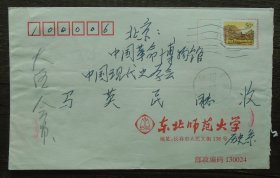 100006
北京：
中国革命博物馆
中国现代史学会
马英民 收
东北师范大学
地址：长春市人民大街138号
邮政编码 130024